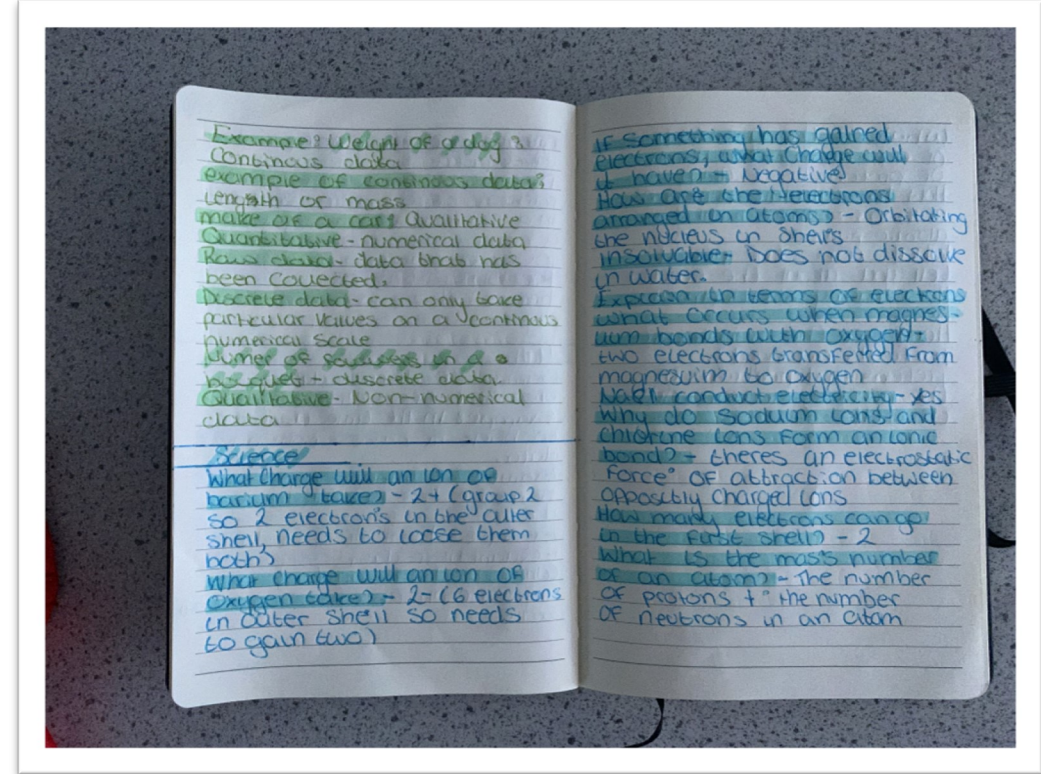 Example: Weight of a dog ?
Continous data
example of continous data?
length or mass
make of a car: Qualitative
Quantitative - numerical data
Raw data - data that has
been collected.
Discrete data - can only take
particular values on a continous
numerical scale
Numer of in a
bouquet - discrete data.
Qualitative - Non-numerical
data
Science
What Charge will an ion of
barium take? - 2+ (group 2
so 2 electron's in the outer
shell, needs to loose them
both)
What Charge will an ion of
Oxygen take? - 2- (6 electrons
in outer shell so needs
to gain two)
If Something has gained
electrons, what Charge will
it have? - Negative
How are the electrons
arranged in atoms? - Orbitaking
the nucleus in shells
insoluable - Does not dissolve
in water.
Explain in terms of electrons
what occurs when magnes-
ium bonds with oxygen -
two electrons transferred from
magnesuim to oxygen
conduct electricity - yes
Why do Sodium ions and
chlorine ions form an ionic
bond? - theres an electrostatic
force of attraction between
oppositly charged ions
How many electrons can go
in the first shell? - 2
What is the mass number
of an atom? - The number
of protons + the number
of neutrons in an atom